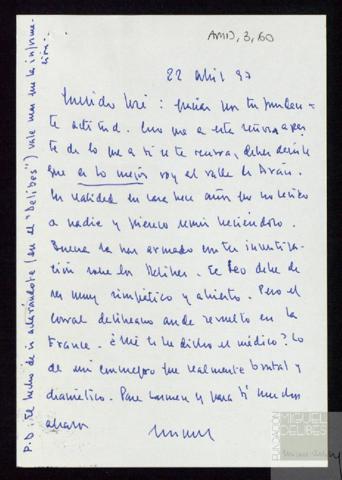 AMD, 3, 60
22 abril 97
Querido José: gracias por tu pruden-
te actitud. Creo que a esta señora apar-
te de lo que a ti se te ocurra, debes decirle
que a lo mejor voy al valle de Arán.
En realidad en casa hace años que no recibo
a nadie y pienso seguir haciéndolo.
Buena la has armado con tu investiga-
ción sobre los Delibes. Te Leo debe de
ser muy simpático y abierto. Pero el
corral delibeano anda revuelto en la
France. ¿Qué te ha dicho el médico? Lo
de mi consuegro fue realmente brutal y
dramático. Para Carmen y para ti muchos
abrazos
Miguel
P.D. Te hecho de ir aclarándote (en el "Delibes") vale más que la informa-
ción.
FUNDACIÓN
MIGUEL
DELIBES